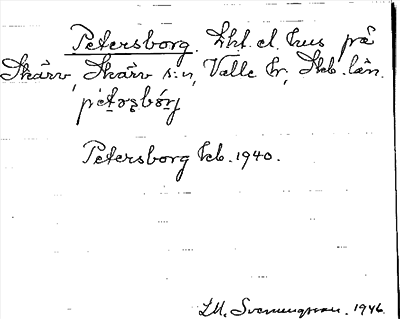 Petersborg. Lht. el. hus på
Skärv, Skärv s:n, Valle hr, Skb. län.
Petersborg kb. 1940.
I.M. Svenungsson. 1946.